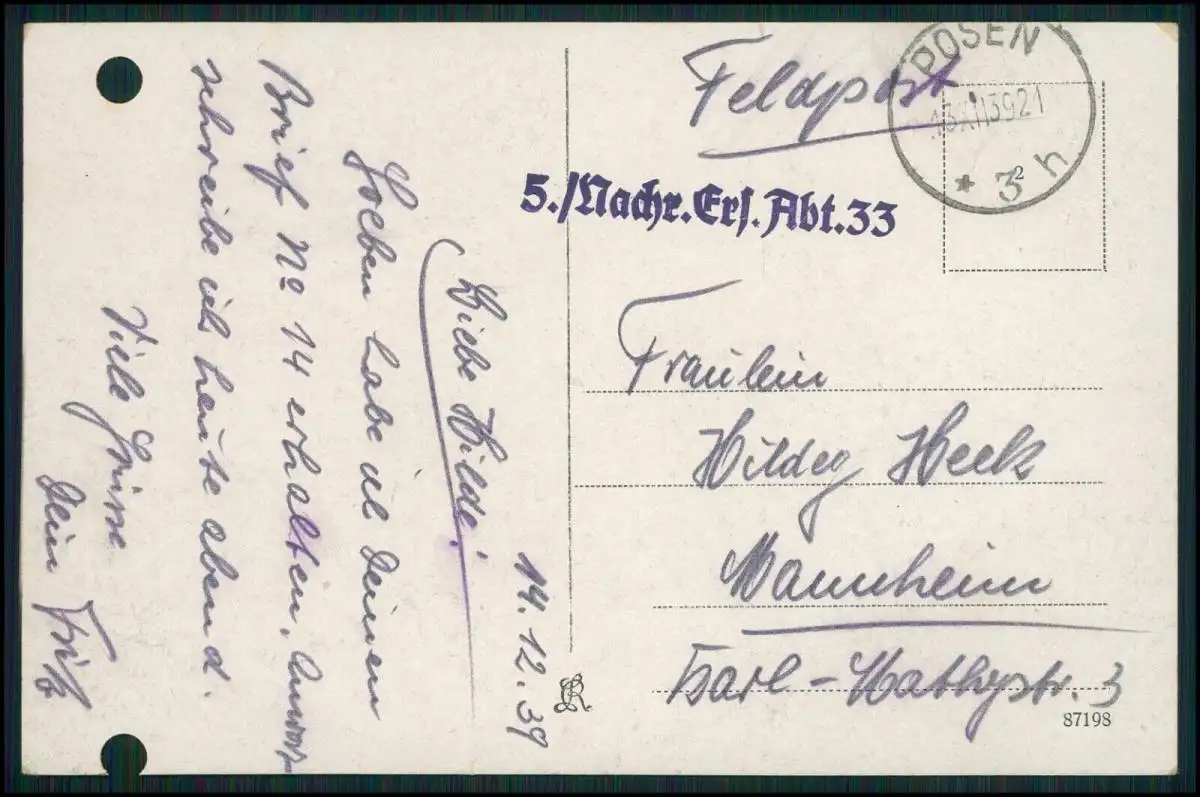 14.12.39
Liebe Hilde!
Soeben habe ich Deinen
Brief No 14 erhalten. Antwort
schreibe ich heute abend.
Viele Grüsse
Dein Fritz
Feldpost.
POSEN
13.XII39 21
* 3² h
5./Nachr.Ers.Abt.33
Fräulein
Hildeg Heck
Mannheim
Karl-Mathystr. 3
87198